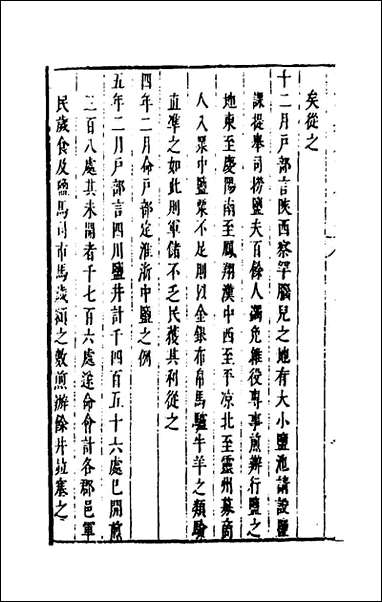 矣從之
十二月戶部言陝西察罕腦兒之地有大小鹽池請設鹽
課提舉司撈鹽夫百餘人蠲免雜役專事煎辦行鹽之
地東至慶陽南至鳳翔漢中西至平凉北至靈州募商
人入粟中鹽粟不足則以金銀布帛馬驢牛羊之類驗
直準之如此則軍儲不乏民獲其利從之
四年二月命戶部定淮浙中鹽之例
五年二月戶部言四川鹽井計千四百五十六處已開煎
三百八處其未開者千七百六處遂命會計各郡邑軍
民歲食及鹽馬司市馬歲額之數煎辦餘井垃塞之